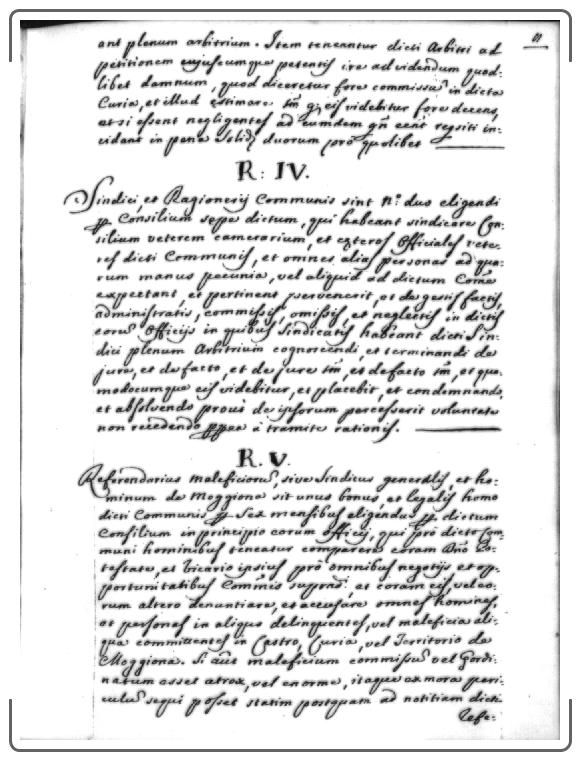 11
ant plenum arbitrium. Item teneantur dicti Arbitri ad
petitionem cujuscumque petentis ire ad videndum quod-
libet damnum, quod diceretur fore commissũ in dicta
Curia, et illud estimare tm̃ q. eis videbitur fore decens,
et si essent negligentes ad eumdem reqsiti in-
cidant in pena Solid. duorum prõ quolibet
R: IV.
Sindici, et Ragionerij Communis sint N.º duo eligendi
Consilium sepe dictum, qui habeant sindicare Con-
silium veterem camerarium, et exteros Officiales vete-
res dicti Communis, et omnes alias personas ad qua-
rum manus pecunia, vel aliquid ad dictum Come
expectant, et pertinent pervenerit, et de gestis factis,
administratis, commissis, omissis, et neglectis in dictis
eorũ Officijs in quibus Sindicatis habeant dicti Sin-
dici plenum Arbitrium cognoscendi, et terminandi de
jure, et de facto, et de jure tm̃, et de facto tm̃, et quo-
modocumque eis videbitur, et placebit, et condemnando,
et absolvendo prout de ipsorum processerit voluntate
non recedendo à tramite rationis.
R. V.
Referendarius maleficiorũ, sive Sindicus generalis, et ho-
minum de Moggiona sit unus bonus, et legalis homo
dicti Communis sex mensibus eligendus dictum
Consilium in principio eorum officij, qui prõ dicto Com-
muni hominibus teneatur comparere coram Dnõ Po-
testate, et Vicario ipsius prõ omnibus negotijs et op-
portunitatibus Com̃nis suprad: et coram eis, vel eo-
rum altero denuntiare, et accusare omnes homines,
et persones in aliquo delinquentes, vel maleficia ali-
qua committentes in Castro, Curia, vel Territorio de
Moggiona. Si aũt maleficium commissũ vel
natum esset atrox, vel enorme, itaque ex mora peri-
culũ sequi posset statim postquam ad notitiam dicti
Refe-